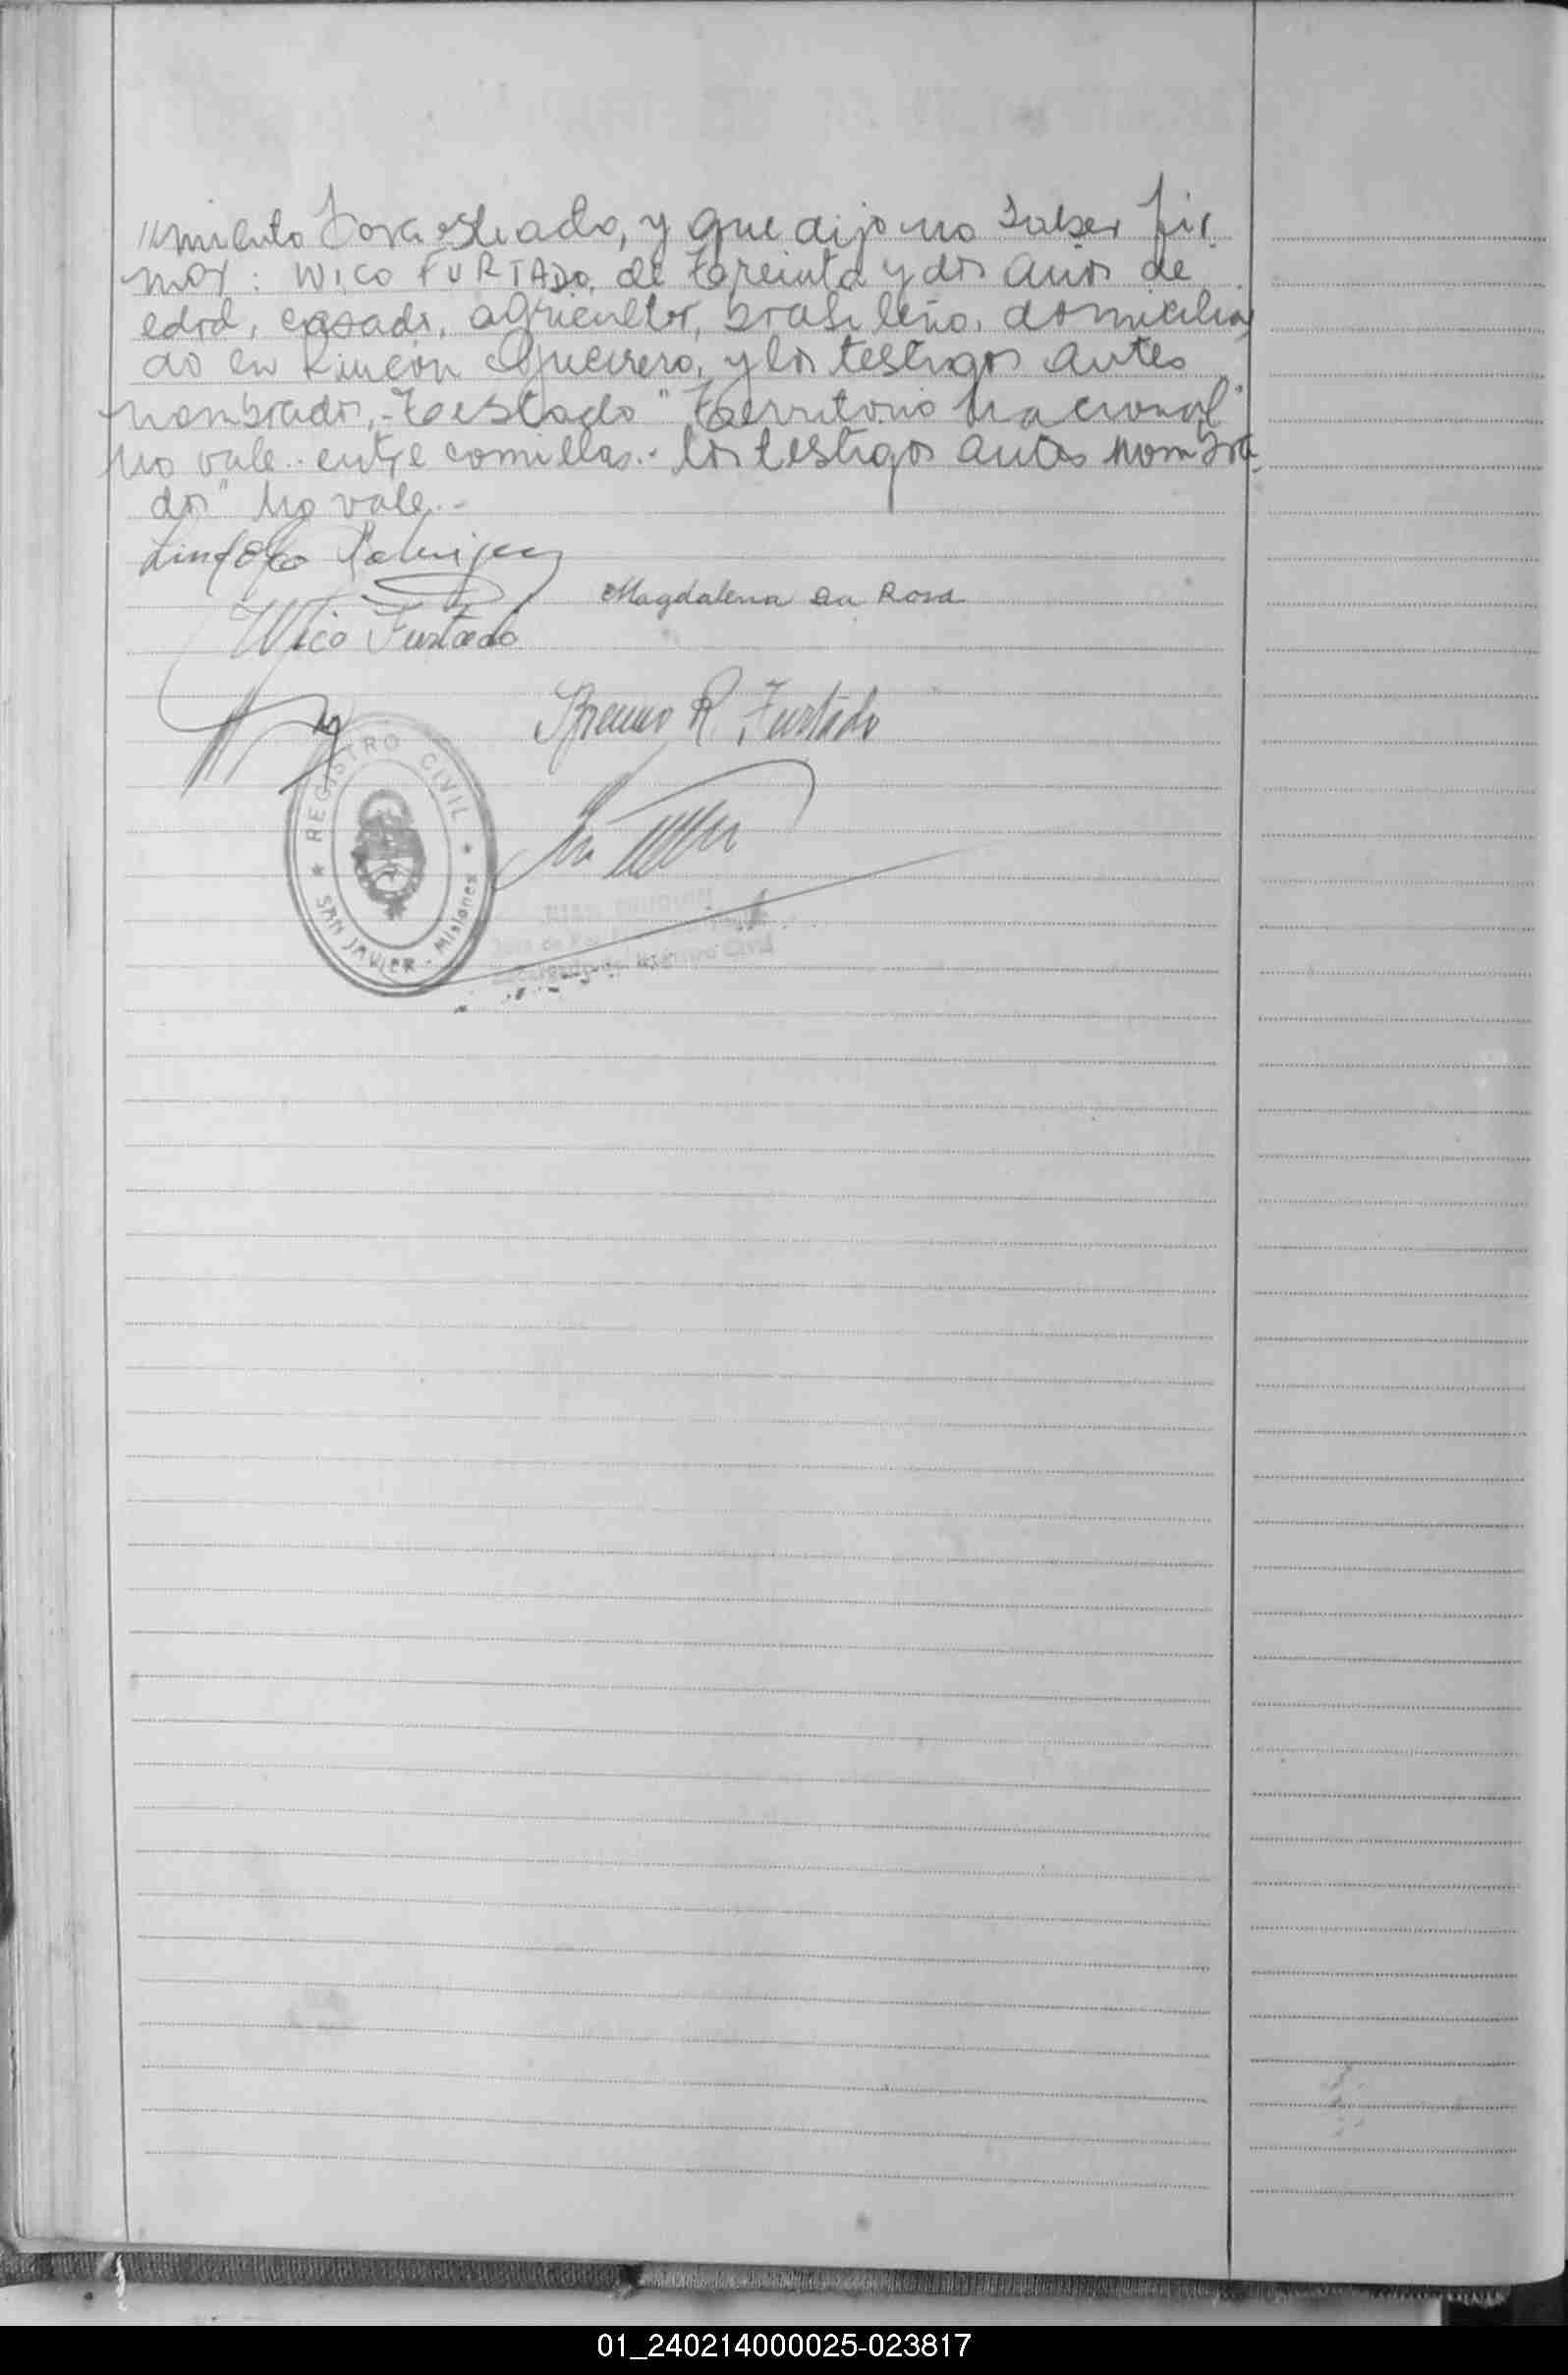 //miento y que dijo no saber fir
mar: WICO FURTADO, de treinta y dos años de
edad, casado, agricultor, brasileño, domicilia
do en Rincón Guerrero, y los testigos antes
nombrados,-Testado "Territorio Nacional"
No vale.-entre comillas.-los testigos antes nombra
dos" No vale.-
Lindolfo Rodriguez
Magdalena da Rosa
Wico Furtado
Breno R. Furtado
REGISTRO CIVIL
SAN JAVIER - Misiones
Juez de Paz
Encargado del Registro Civil
01_240214000025-023817